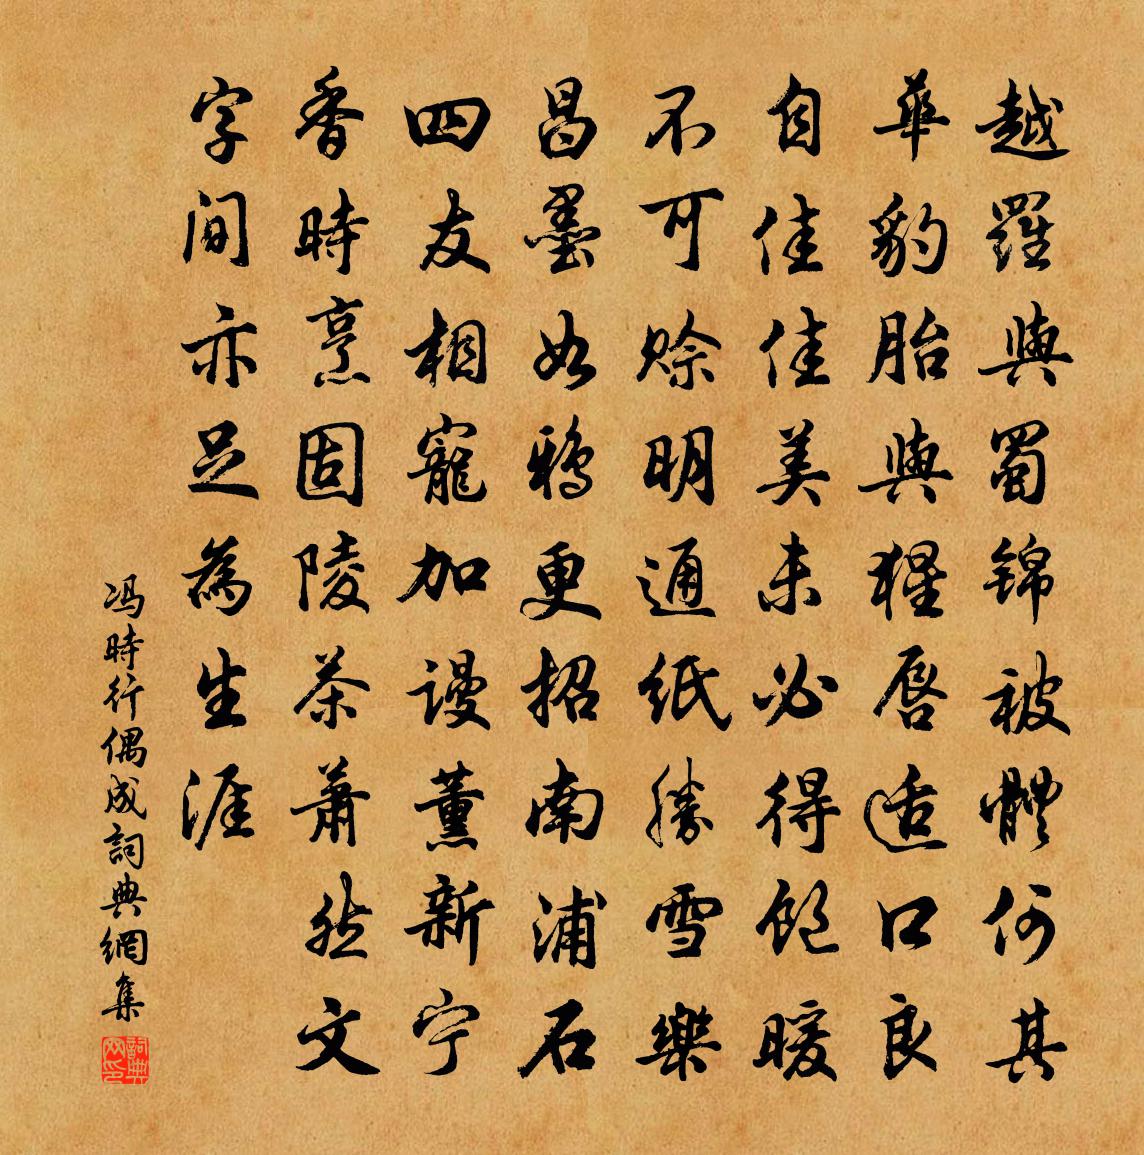 越羅與蜀锦被體何其
華豹胎與猩唇适口良
自佳佳美未必得飽暖
不可赊明通纸勝雪樂
昌墨如鸦更招南浦石
四友相寵加谩薰新宁
香時烹固陵茶萧然文
字间亦足為生涯
冯時行偶成詞典網集
詞典网印